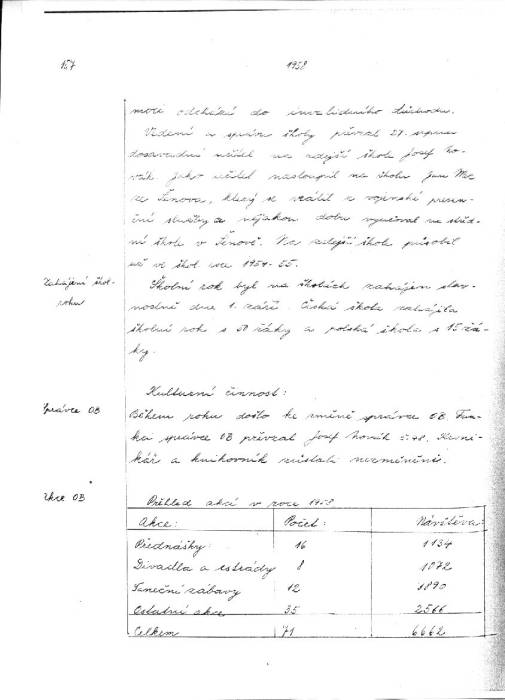 157 1958
moci odchází do invalidního důchodu.
Vedení a správu školy převzal 27. srpna
dosavadní učitel na zdejší škole Josef No-
vák. Jako učitel nastoupil na školu Jan
ze Šenova, který se vrátil z vojenské presen-
ční služby a nějakou dobu vyučoval na střed-
ní škole v Šenově. Na zdejší škole působil
už ve škol. roce 1954-55.
Zahájení škol- Školní rok byl na školách zahájen slav-
roku nostně dne 1. září. Česká škola zahájila
školní rok s 50 žáky a polská škola s 15 žá-
ky.
Kulturní činnost:
Správce OB Během roku došlo ke změně správce OB. Funk-
ku správce OB převzal Josef Novák
kář a knihovník zůstali nezměněni.
Akce OB Přehled akcí v roce 1958
Akce: Počet: Návštěva:
Přednášky: 16 1134
Divadla a estrády 8 1072
Taneční zábavy 12 1890
Ostatní akce 35 2566
Celkem 71 6662